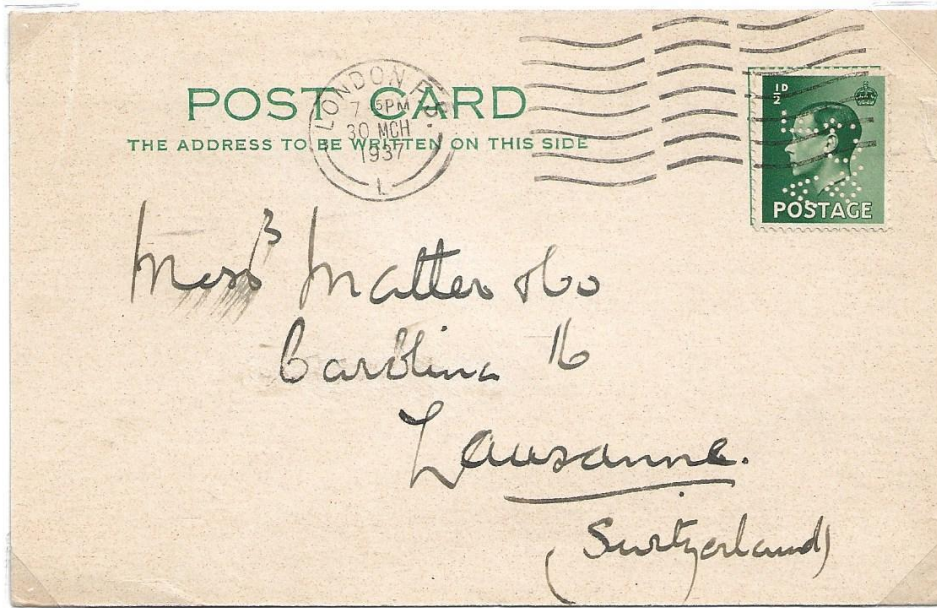 POST CARD
THE ADDRESS TO BE WRITTEN ON THIS SIDE
LONDON F.S.
7 15PM
30 MCH
1937
L
½D
POSTAGE
Messrs Matter & Co
Carolina 16
Lausanne.
(Switzerland)